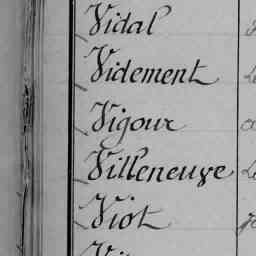 Vidal
Videment
Vigour
Villeneuve
Viot